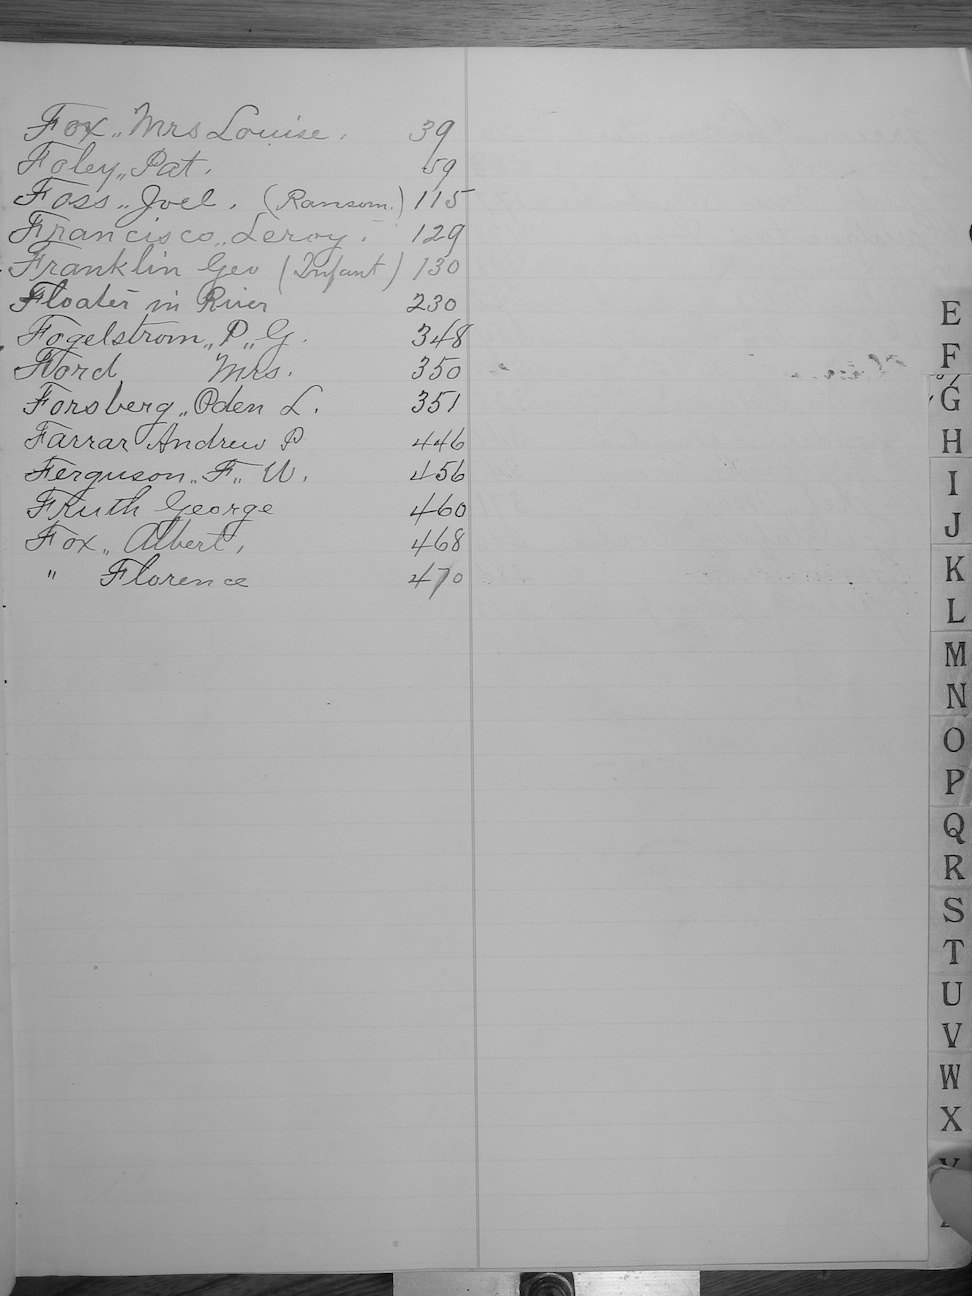 Fox,, Mrs Louise. 39
Foley,, Pat. 59
Foss,, Joel. (Ransom.) 115
Francisco,, Leroy. 129
Franklin Geo (Infant) 130
Floater in River 230
Fogelstrom,, P,, G. 348
Ford Mrs. 350
Forsberg,, Oden L. 351
Farrar Andrew P 446
Ferguson,, F,, W. 456
Fruth George 460
Fox,, Albert, 468
" Florence 470
E
F
G
H
I
J
K
L
M
N
O
P
Q
R
S
T
U
V
W
X